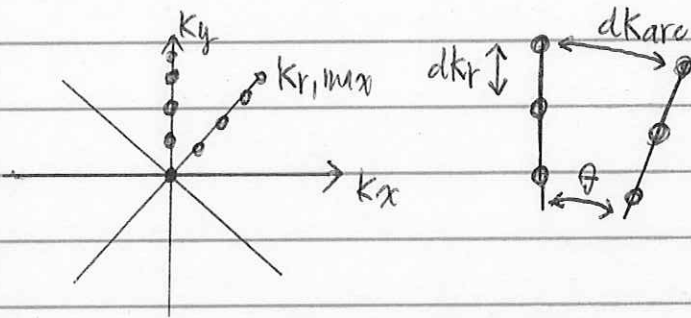 ky
kr,max
kx
dkr
dkarc
θ